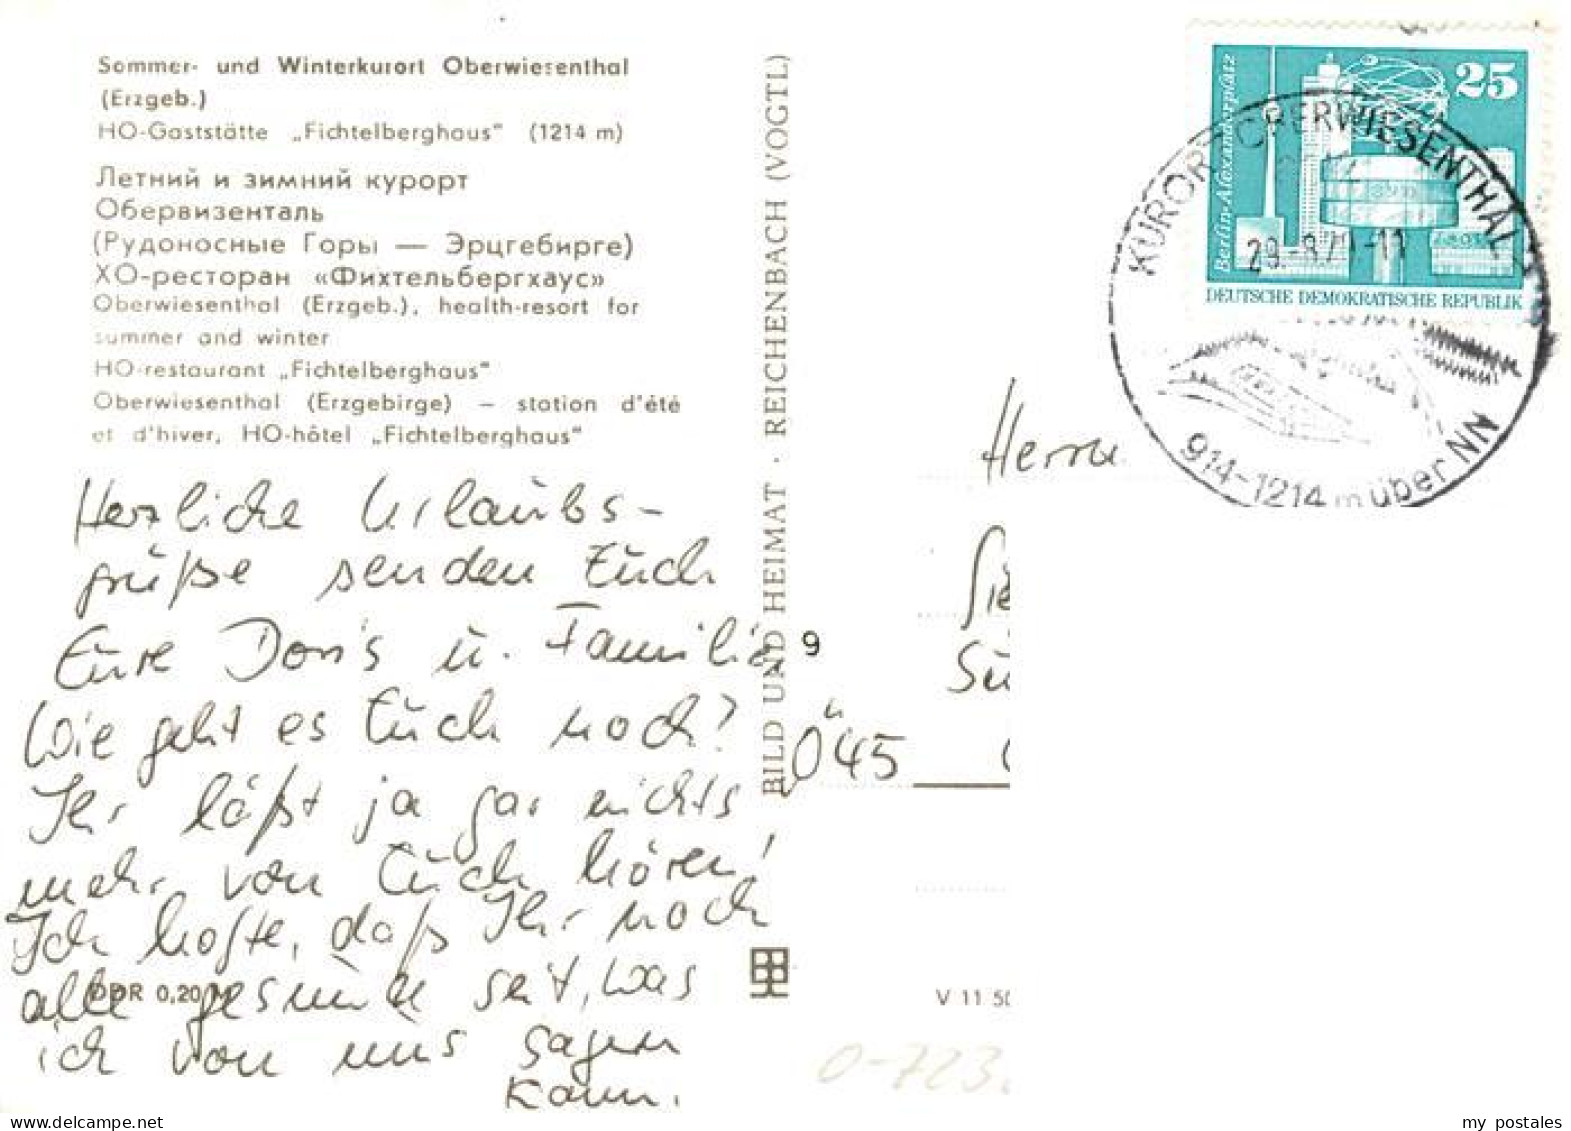 Sommer- und Winterkurort Oberwiesenthal
(Erzgeb.)
HO-Gaststätte „Fichtelberghaus" (1214 m)
Летний и зимний курорт
Обервизенталь
(Рудоносные Горы — Эрцгебирге)
ХО-ресторан «Фихтельбергхаус»
Oberwiesenthal (Erzgeb.), health-resort for
summer and winter
HO-restaurant „Fichtelberghaus"
Oberwiesenthal (Erzgebirge) – station d'été
et d'hiver, HO-hôtel „Fichtelberghaus"
Herzliche Urlaubs-
grüße senden Euch
Eure Doris u. Familie
Wie geht es Euch noch?
Ihr läßt ja gar nichts
mehr von Euch hören!
Ich hoffe, daß Ihr noch
alle gesund seit, was
ich von uns sagen
kann.
DDR 0,20 M
BILD UND HEIMAT · REICHENBACH (VOGTL)
9
25
Berlin-Alexanderplatz
DEUTSCHE DEMOKRATISCHE REPUBLIK
KURORT OBERWIESENTHAL
914-1214 m über NN
Herrn
Ö 45
V 11 50
0-723.
my postales
www.delcampe.net